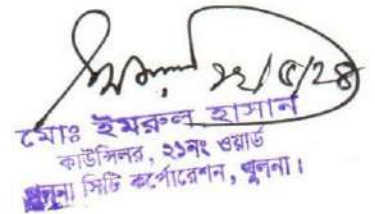 ২২/৫/২৪
মোঃ ইমরুল হাসান
কাউন্সিলর, ২১নং ওয়ার্ড
খুলনা সিটি কর্পোরেশন, খুলনা।